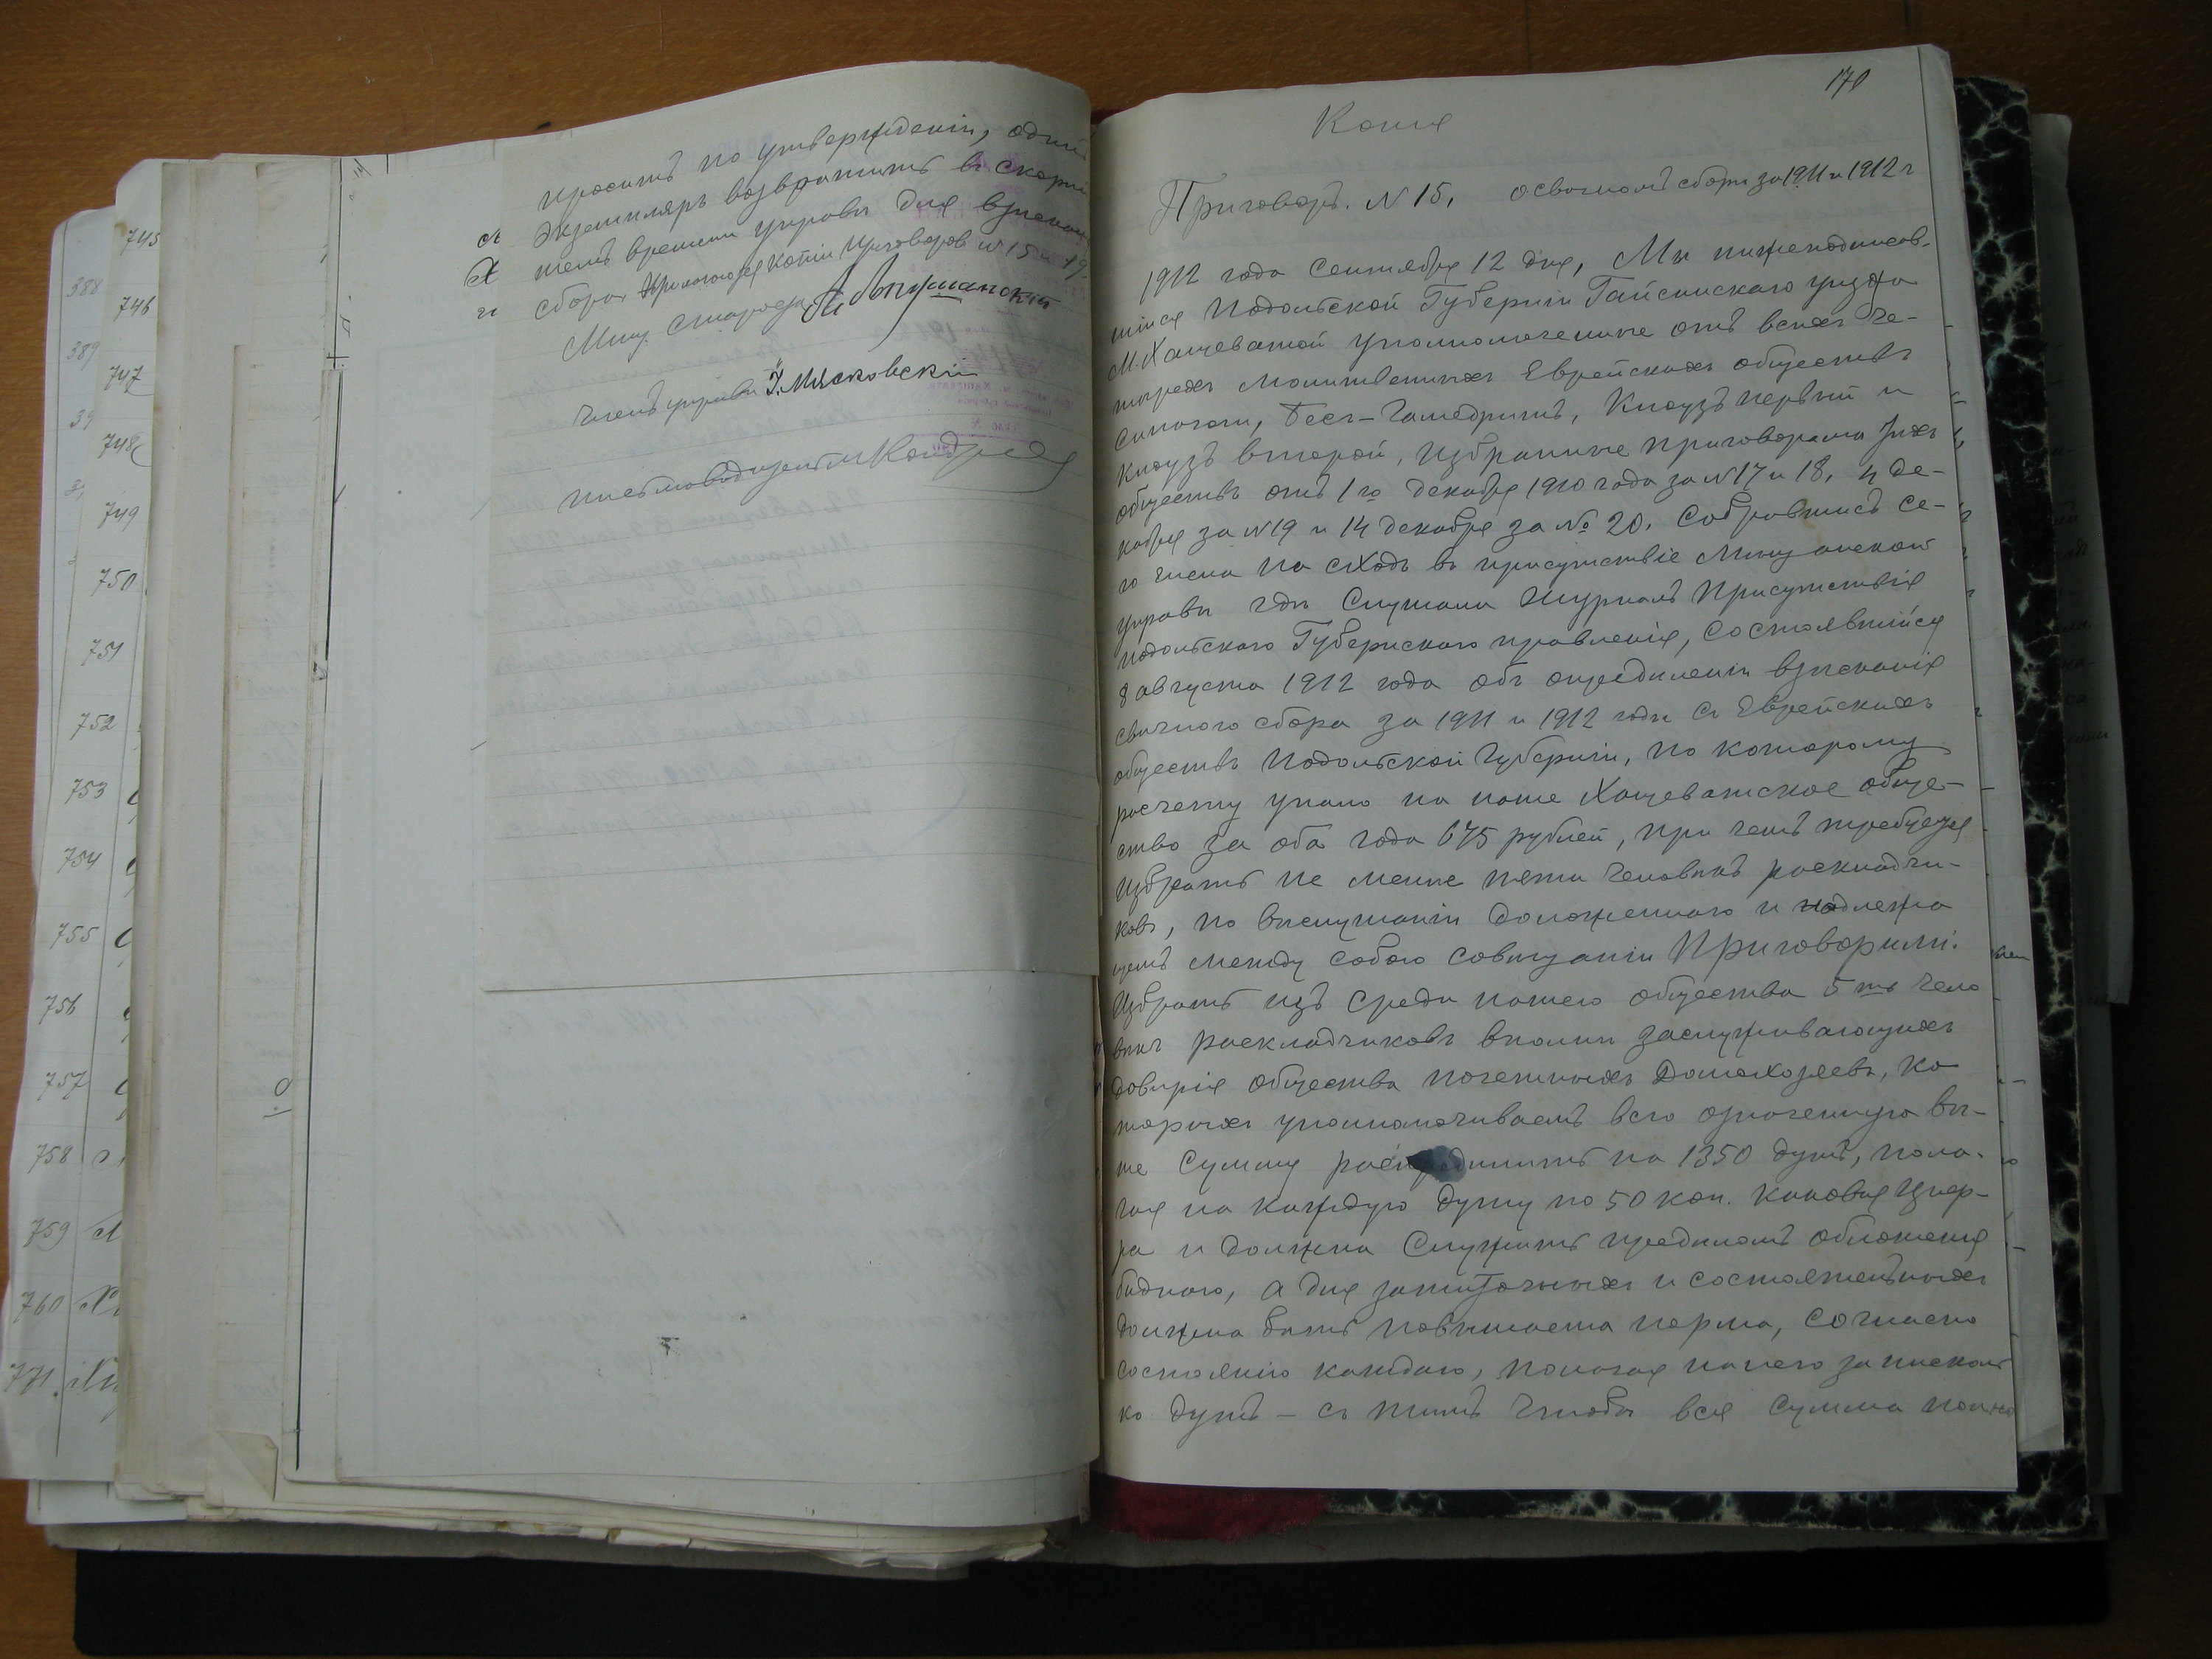 745
746
747
748
749
750
751
752
753
754
755
756
757
758
759
760
771
388
389
39
просить по утвержденіи, одинъ
экземпляръ возвратить въ скорѣй
шемъ времени управѣ для взыскан
сбора. Прилогоется копіи приговоровъ № 15 и 19
Мѣщ. Староста
Членъ управы І. Мясковскій
письмоводитель Кондр
170
Копія
Приговоръ. N 15. о свечномъ сборѣ за 1911 и 1912 г
1912 года Сентября 12 дня, Мы нижеподписав-
шіися Подольской Губерніи Гайсинскаго уѣзда
М. Хащеватой уполномоченные отъ всѣхъ че-
тырехъ молитвенныхъ Еврейскихъ обществъ
синагоги, Бесъ-Гамедришъ, Клаузъ первый и
Клаузъ второй, избранные приговорами Этихъ
обществъ отъ 1 го декабря 1910 года за N 17 и 18, 4 де-
кабря за N 19 и 14 декабря за № 20. Собравшись се-
го числа на сходъ въ присутствіе Мѣщанской
управы гдѣ слушали журналъ Присутствія
подольскаго Губернскаго правленія, состоявшійся
8 августа 1912 года объ опредѣленіи взысканія
свѣчного сбора за 1911 и 1912 годы съ Еврейскихъ
обществъ Подольской губерніи, по которому
расчету упало на наше Хащеватское обще-
ство за оба года 675 рублей, при чемъ требуется
избрать не менѣе пяти человѣкъ раскладчи-
ковъ, по выслушаніи доложенного и надлежа
щемъ между собою совѣщаніи Приговорили:
Избрать изъ среды нашего общества 5 ть чело
вѣкъ раскладчиковъ вполнѣ заслуживающихъ
довѣрія общества почетныхъ Домохозяевъ, ко
торыхъ уполномачиваемъ всю означенную вы-
ше сумму распредѣлить на 1350 душъ, пола-
гая на каждую душу по 50 коп. каковая циф-
ра и должна служить предѣломъ обложенія
бѣдного, а для зажиточныхъ и состоятельныхъ
должна быть повышаема норма, согласно
состоянію каждаго, полагая на него за нѣсколь
ко душъ – съ тѣмъ чтобы вся сумма полно